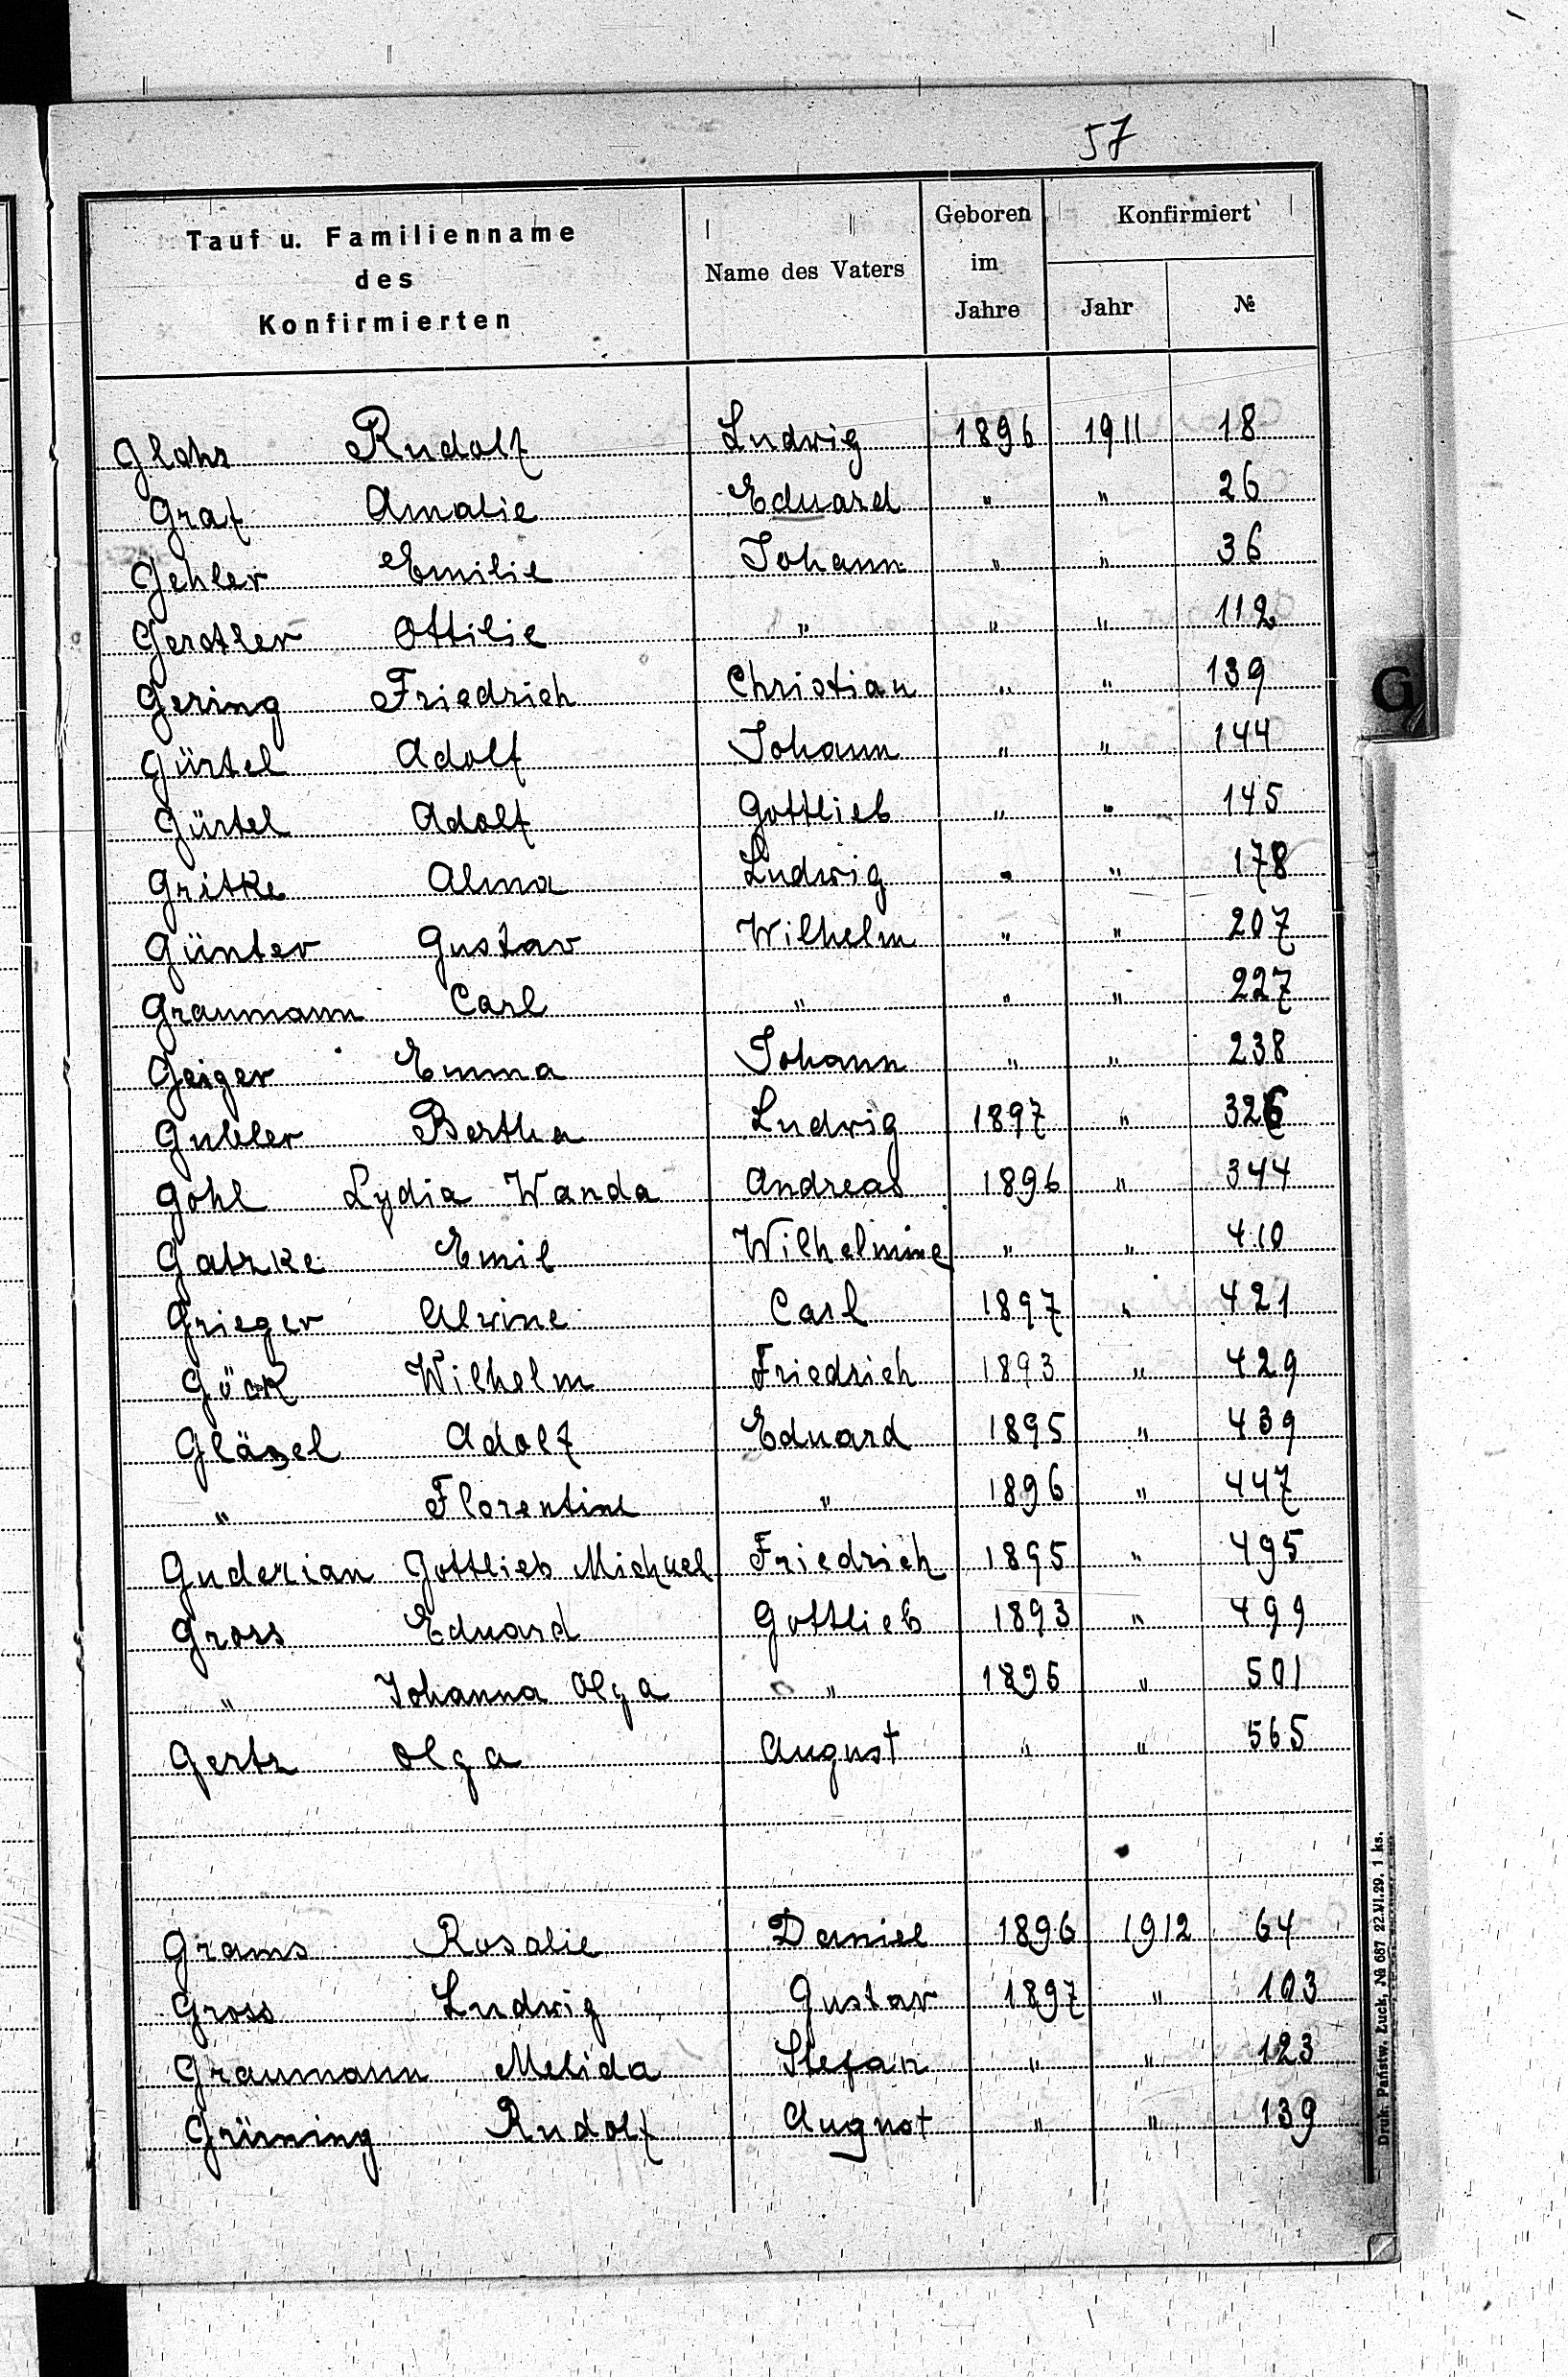 57
Tauf u. Familienname des Konfirmierten | Name des Vaters | Geboren im Jahre | Konfirmiert Jahr | №
Glohr Rudolf Ludwig 1896 1911 18
Graf Amalie Eduard " " 26
Gehler Emilie Johann " " 36
Gerstler Ottilie " " " 112
Gering Friedrich Christian " " 139
Gürtel Adolf Johann " " 144
Gürtel Adolf Gottlieb " " 145
Gritke Alma Ludwig " " 178
Günter Gustav Wilhelm " " 207
Graumann Carl " " " 227
Geiger Emma Johann " " 238
Gubler Bertha Ludwig 1897 " 326
Gohl Lydia Wanda Andreas 1896 " 344
Gatzke Emil Wilhelmine " " 410
Grieger Alwine Carl 1897 " 421
Göck Wilhelm Friedrich 1893 " 429
Gläzel Adolf Eduard 1895 " 439
" Florentine " 1896 " 447
Guderian Gottlieb Michael Friedrich 1895 " 495
Gross Eduard Gottlieb 1893 " 499
" Johanna Olga " 1895 " 501
Gertz Olga August " " 565
Grams Rosalie Daniel 1896 1912 64
Gross Ludwig Gustav 1897 " 103
Graumann Melida Stefan " " 123
Grüning Rudolf August " " 139
G
Druk. Państw. Łuck, № 687 22.VI.29. 1 ks.